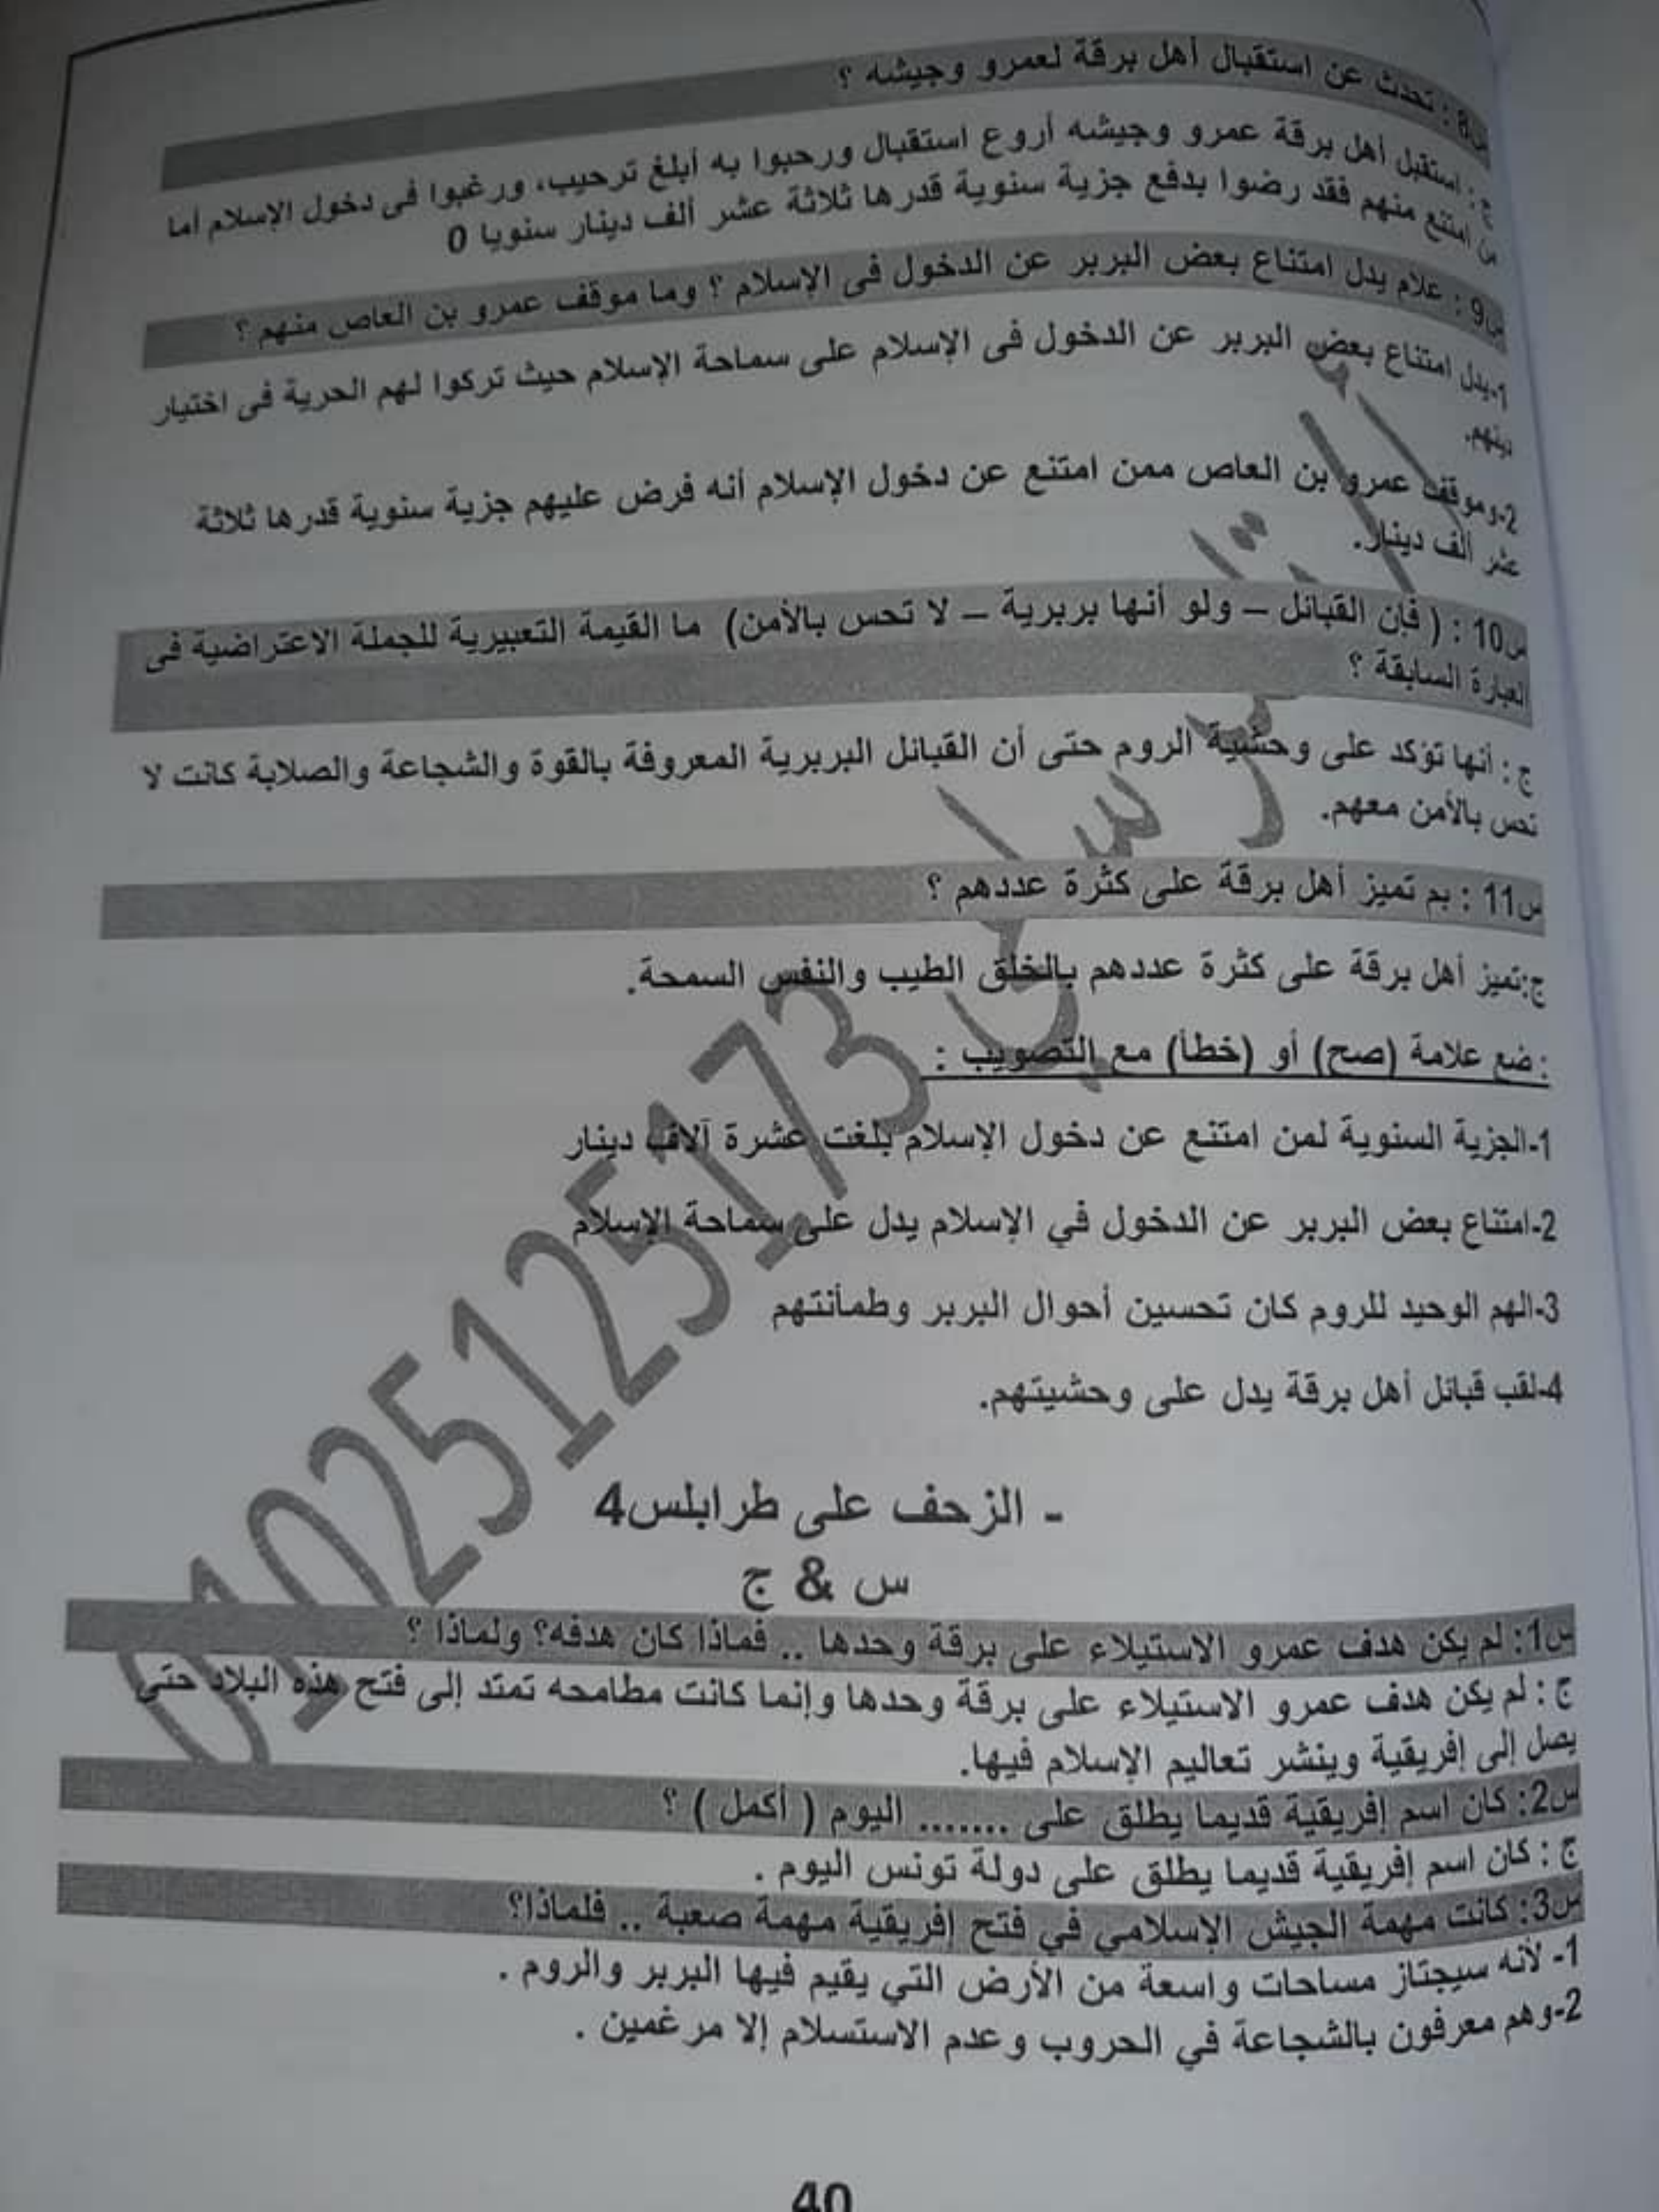 س8 : تحدث عن استقبال أهل برقة لعمرو وجيشه ؟
ج : استقبل أهل برقة عمرو وجيشه أروع استقبال ورحبوا به أبلغ ترحيب، ورغبوا فى دخول الإسلام أما
من امتنع منهم فقد رضوا بدفع جزية سنوية قدرها ثلاثة عشر ألف دينار سنويا 0
س9 : علام يدل امتناع بعض البربر عن الدخول فى الإسلام ؟ وما موقف عمرو بن العاص منهم ؟
1-يدل امتناع بعض البربر عن الدخول فى الإسلام على سماحة الإسلام حيث تركوا لهم الحرية فى اختيار
دينهم.
2-وموقف عمرو بن العاص ممن امتنع عن دخول الإسلام أنه فرض عليهم جزية سنوية قدرها ثلاثة
عشر ألف دينار.
س10 : ( فإن القبائل – ولو أنها بربرية – لا تحس بالأمن) ما القيمة التعبيرية للجملة الاعتراضية فى
العبارة السابقة ؟
ج : أنها تؤكد على وحشية الروم حتى أن القبائل البربرية المعروفة بالقوة والشجاعة والصلابة كانت لا
تحس بالأمن معهم.
س11 : بم تميز أهل برقة على كثرة عددهم ؟
ج:تميز أهل برقة على كثرة عددهم بالخلق الطيب والنفس السمحة.
: ضع علامة (صح) أو (خطأ) مع التصويب :
1-الجزية السنوية لمن امتنع عن دخول الإسلام بلغت عشرة آلاف دينار
2-امتناع بعض البربر عن الدخول في الإسلام يدل على سماحة الإسلام
3-الهم الوحيد للروم كان تحسين أحوال البربر وطمأنتهم
4-لقب قبائل أهل برقة يدل على وحشيتهم.
01025125173
- الزحف على طرابلس4
س & ج
س1: لم يكن هدف عمرو الاستيلاء على برقة وحدها .. فماذا كان هدفه؟ ولماذا ؟
ج : لم يكن هدف عمرو الاستيلاء على برقة وحدها وإنما كانت مطامحه تمتد إلى فتح هذه البلاد حتى
يصل إلى إفريقية وينشر تعاليم الإسلام فيها.
س2: كان اسم إفريقية قديما يطلق على ....... اليوم ( أكمل ) ؟
ج : كان اسم إفريقية قديما يطلق على دولة تونس اليوم .
س3: كانت مهمة الجيش الإسلامي في فتح إفريقية مهمة صعبة .. فلماذا؟
1- لأنه سيجتاز مساحات واسعة من الأرض التي يقيم فيها البربر والروم .
2-وهم معرفون بالشجاعة في الحروب وعدم الاستسلام إلا مرغمين .
40